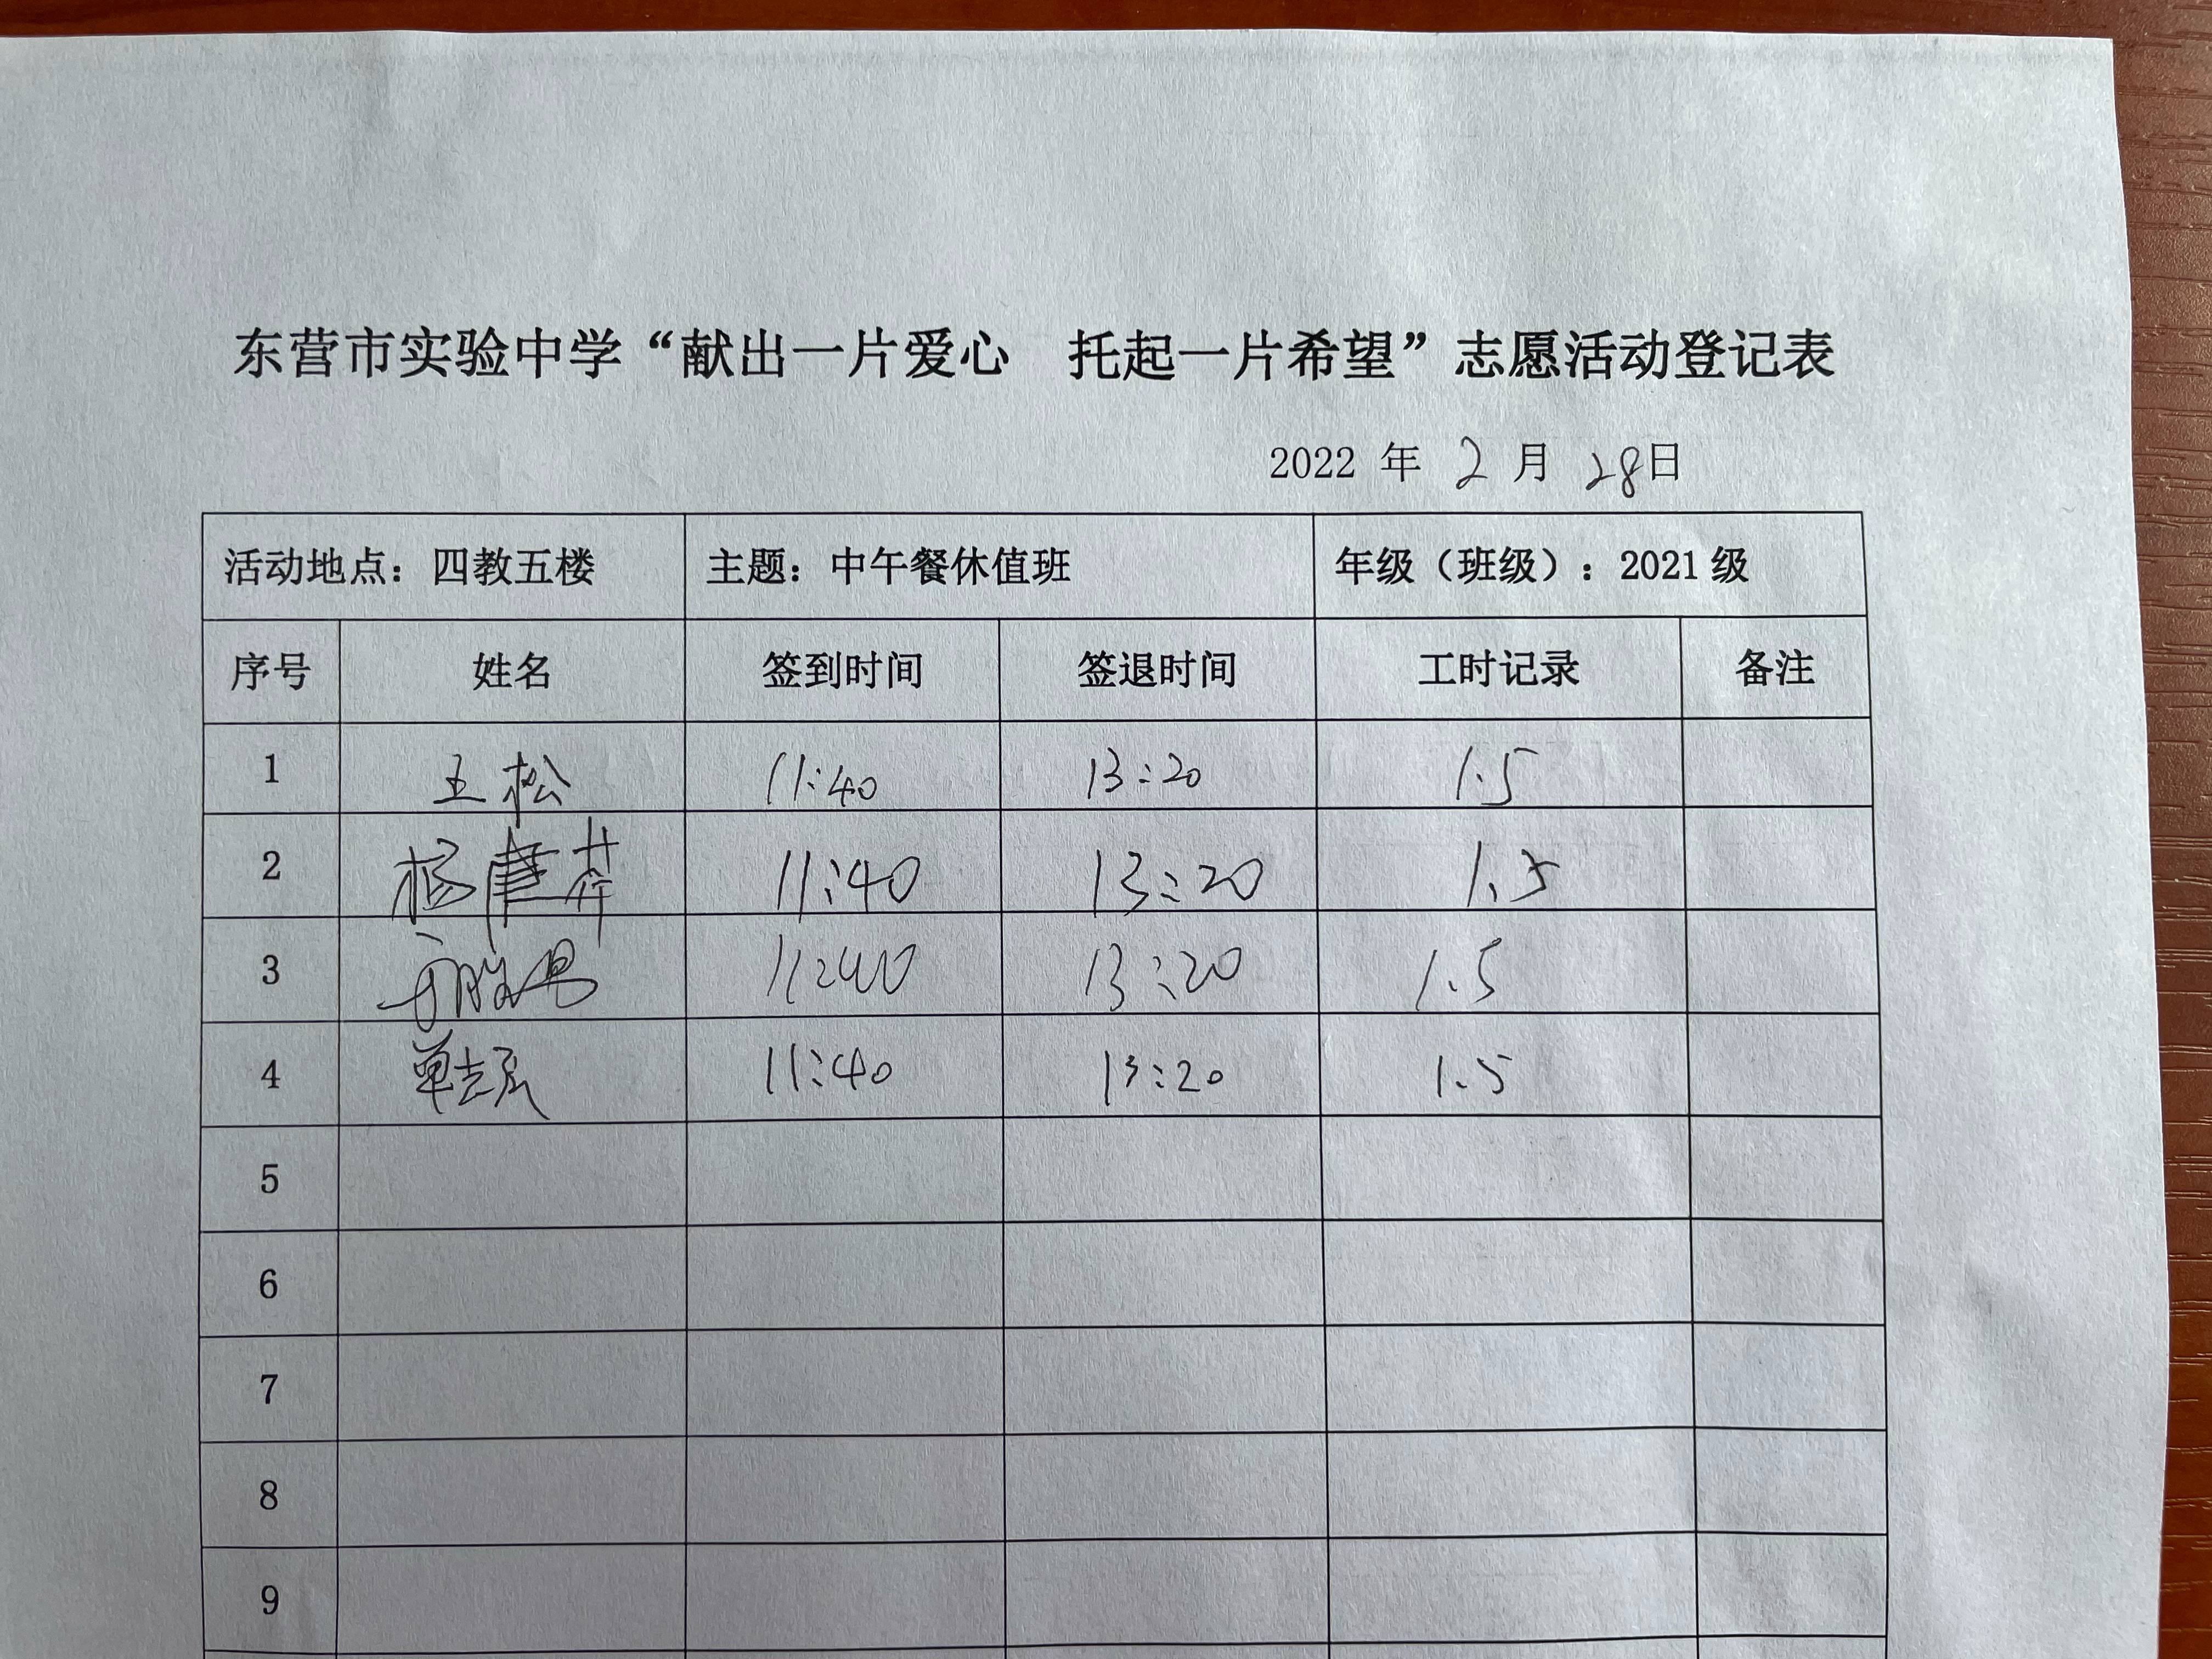 东营市实验中学“献出一片爱心 托起一片希望”志愿活动登记表
2022 年 2 月 28日
活动地点：四教五楼 主题：中午餐休值班 年级（班级）：2021 级
序号 姓名 签到时间 签退时间 工时记录 备注
1 王松 11:40 13:20 1.5
2 杨 11:40 13:20 1.5
3 11:40 13:20 1.5
4 单 11:40 13:20 1.5
5
6
7
8
9